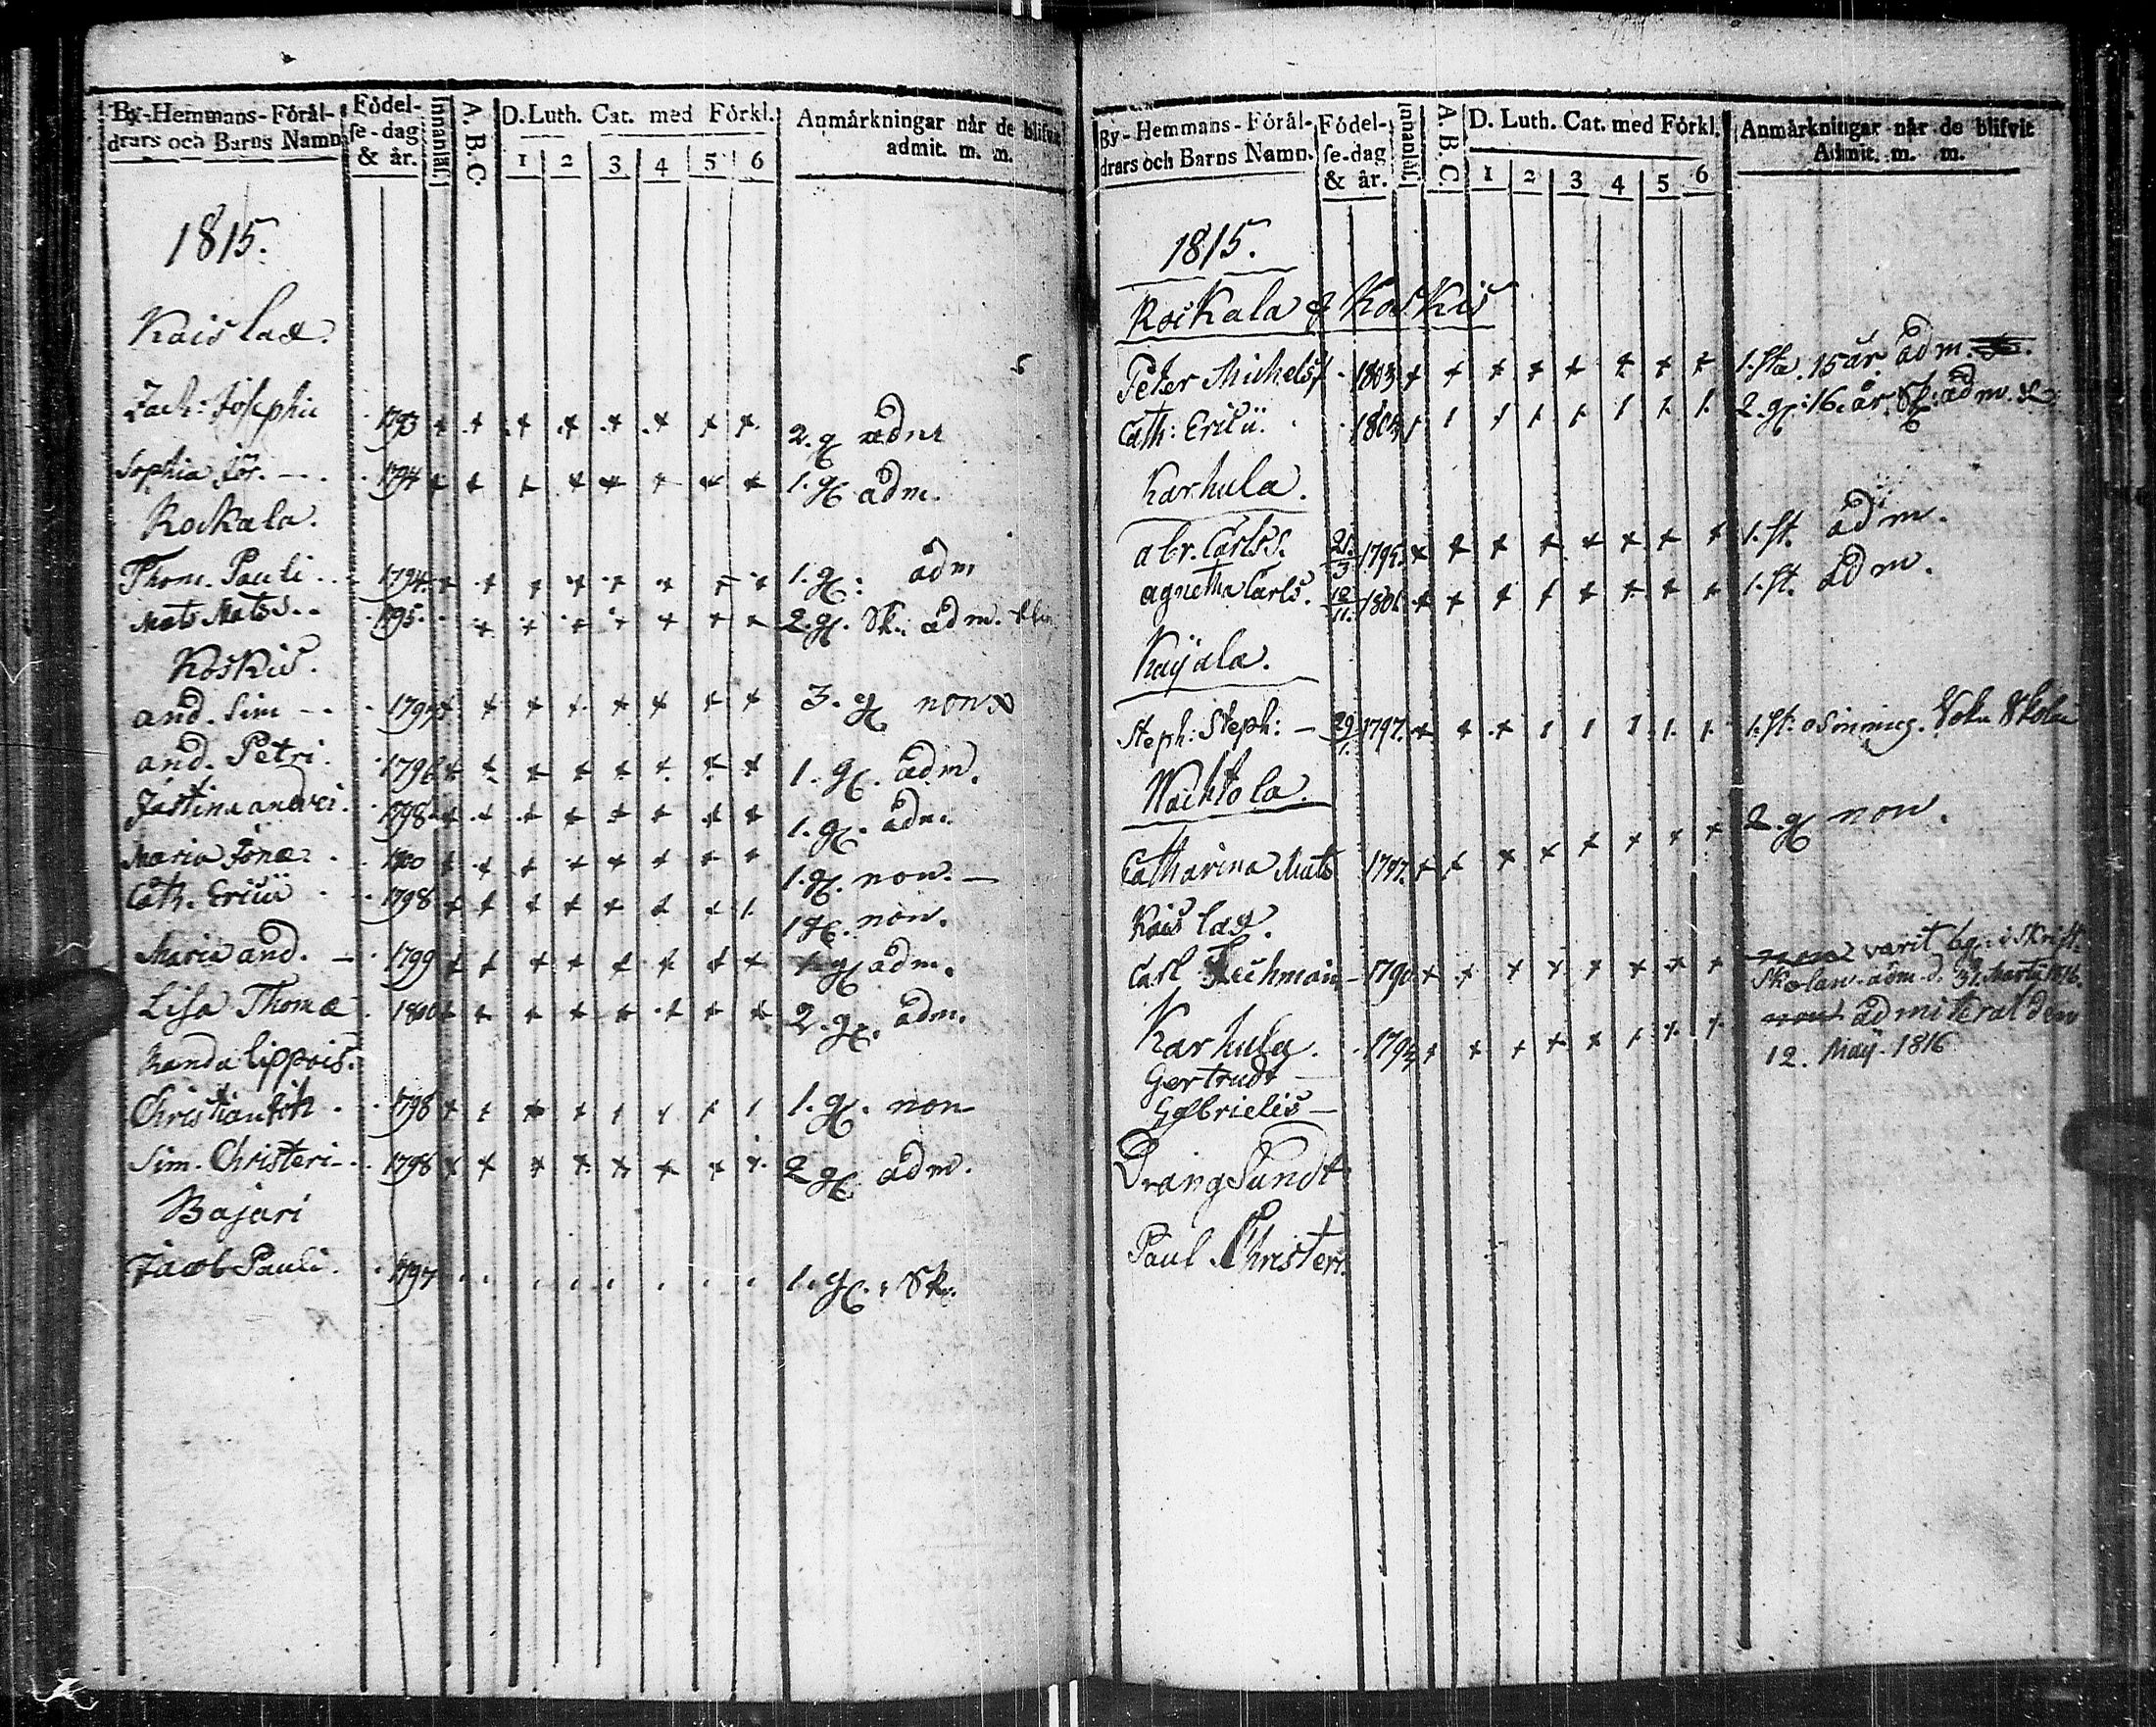 By-Hemmans-Förål-drars och Barns Namn Födel-se-dag & år. Innanläs. A. B. C. D. Luth. Cat. med Förkl. 1 2 3 4 5 6 Anmårkningar når de blifvit admit. m. m.
1815.
Kaislax.
Zach: Josephi 1793 2. g adm
Sophia Jör. 1794 1. g adm.
Rockala.
Thom. Pauli 1794 1. g: adm
Mats Mats. 1795. 2. g. Sk. adm.
Koskis.
and. Sim 1797 3. g non
and. Petri. 1796 1. g. adm.
Justina andrei. 1798 1. g. adm.
Maria Jonæ 1800 1. g. non.
Cath. Ericii 1798 1 g. non.
Maria and. 1799 1. g adm.
Lisa Thomæ 1800 2. g. adm.
Randa lippois.
Christian Joh. 1798 1. g. non
Sim. Christeri 1798 2 g. adm.
Bajari
Jacob Pauli. 1797 1. g.: Sk.
By-Hemmans-Förål-drars och Barns Namn. Födel-se-dag & år. Innanläs. A. B. C. D. Luth. Cat. med Förkl. 1 2 3 4 5 6 Anmårkningar når de blifvit Admit. m. m.
1815.
Rockala & Koskis
Peter Michelss 1803 1. sta. 15 år. adm.
Cath: Ericii. 2. g: 16. år. Sk: adm.
Karhula.
abr. Carlss. 21/3 1795. 1. st. adm.
agnetha Carls. 12/11. 1801 1. st. adm.
Kaÿala.
Steph: Steph: 29/1. 1797. 1. st:
Nachtola.
Catharina Mats 1797. 2. g non.
Kaislax.
Carl 1790 non varit 6 g. i Skrift.
Skolan. adm. d. 31. Martii 1816.
Karhula. 1794 non admitterat den
Gertrudt 12. Maÿ. 1816
Gabrielis
Drängsundt
Paul Christers.